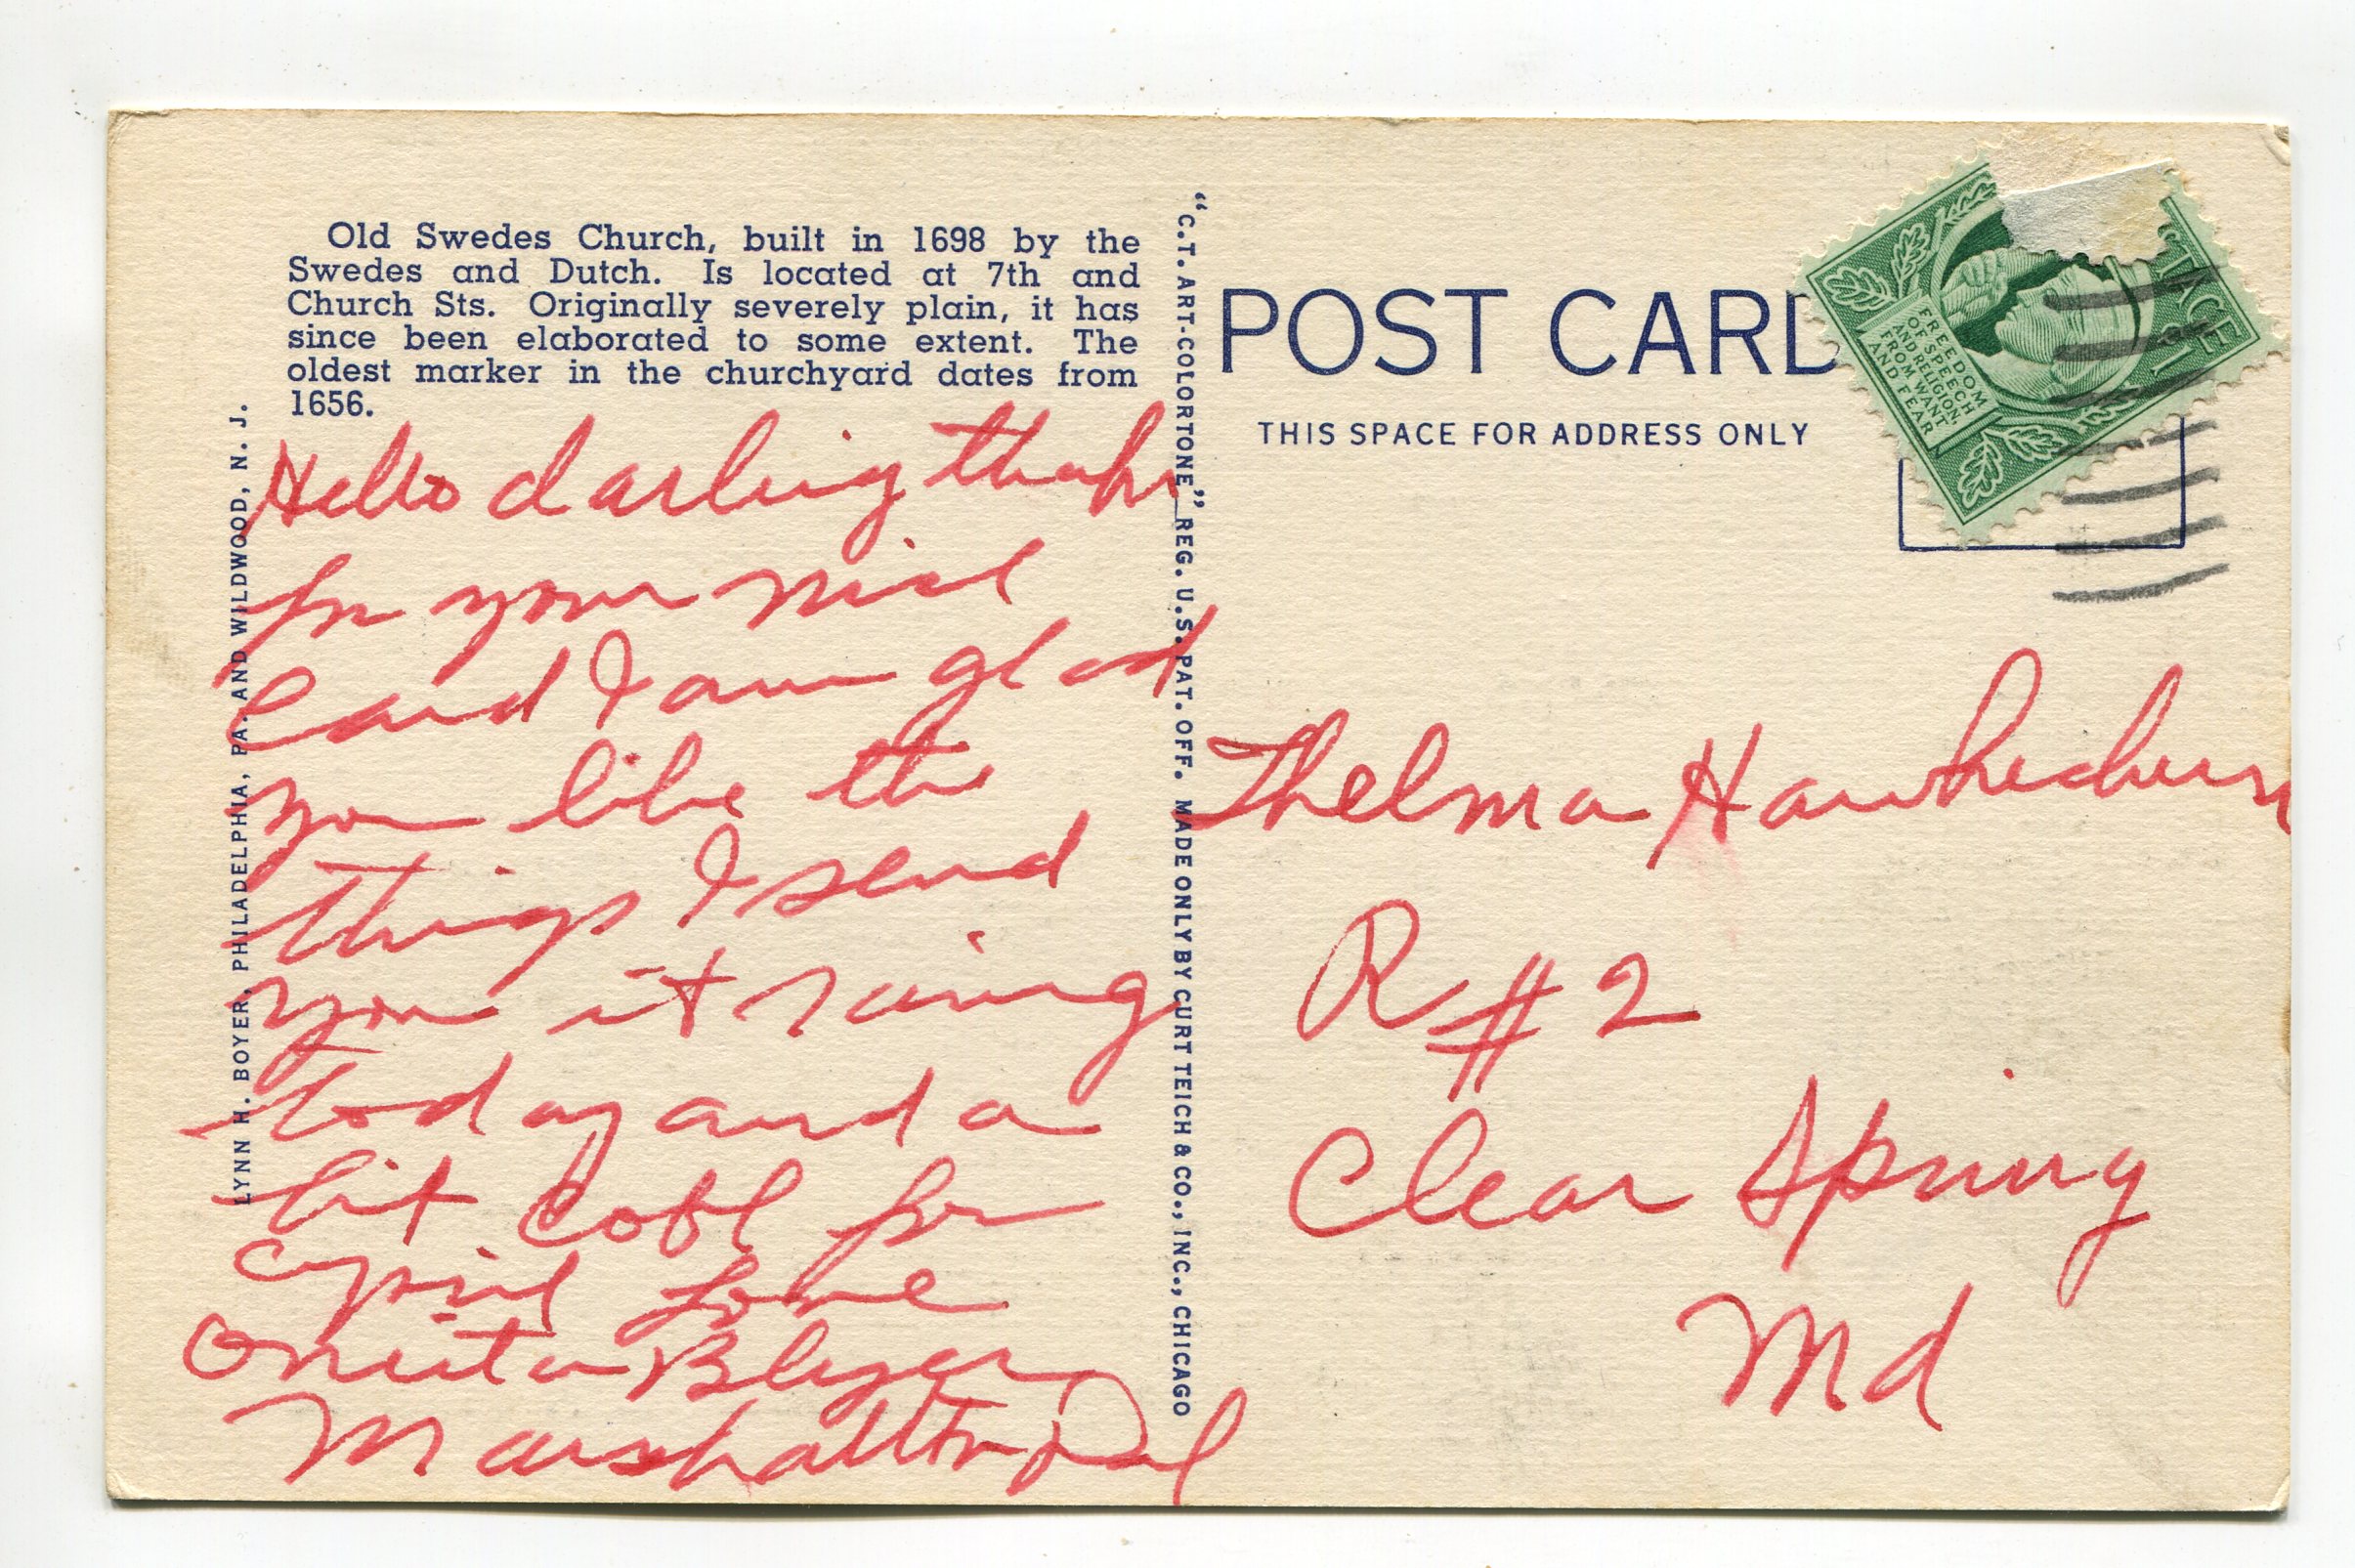 Old Swedes Church, built in 1698 by the
Swedes and Dutch. Is located at 7th and
Church Sts. Originally severely plain, it has
since been elaborated to some extent. The
oldest marker in the churchyard dates from
1656.
Hello darling thank
for your nice
Card I am glad
you like the
things I send
you it raining
today and a
bit cold for
april Love
Oneita Blyer
Marshallton Del
LYNN H. BOYER, PHILADELPHIA, PA. AND WILDWOOD, N. J.
"C.T. ART-COLORTONE" REG. U.S. PAT. OFF. MADE ONLY BY CURT TEICH & CO., INC., CHICAGO
POST CARD
THIS SPACE FOR ADDRESS ONLY
FREEDOM
OF SPEECH
AND RELIGION,
FROM WANT
AND FEAR
Thelma
R #2
Clear Spring
Md